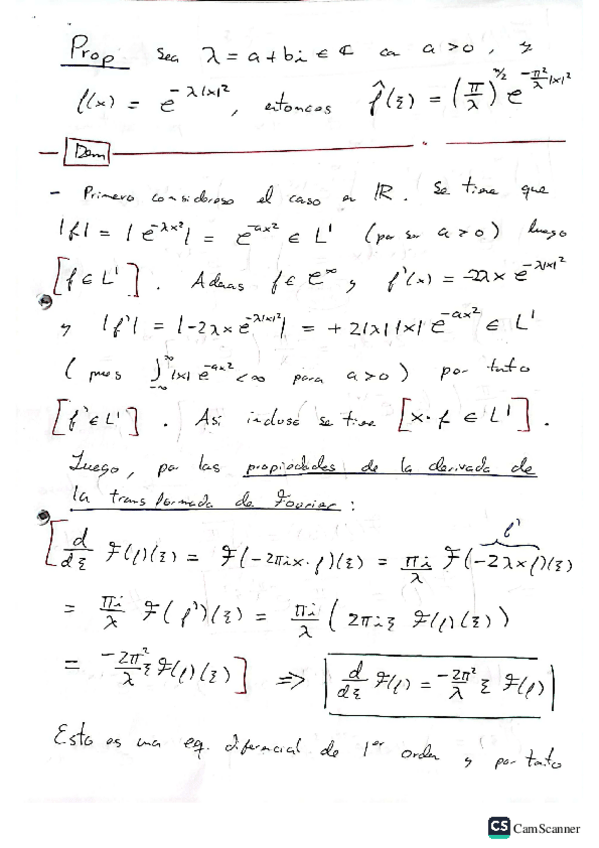 Prop Sea λ = a + bi ∈ ℂ con a > 0, y
f(x) = e^{-λ|x|²}, entonces f̂(ξ) = (π/λ)^{n/2} e^{-π²/λ |x|²}
Dem
- Primero consideroso el caso en ℝ. Se tiene que
|f| = |e^{-λx²}| = e^{-ax²} ∈ L¹ (por ser a > 0) luego
[f ∈ L¹]. Ademas f ∈ C^∞ y f'(x) = -2λx e^{-λ|x|²}
y |f'| = |-2λx e^{-λ|x|²}| = + 2|λ||x| e^{-ax²} ∈ L¹
(pues ∫_{-∞}^{∞} |x| e^{-ax²} < ∞ para a > 0) por tanto
[f' ∈ L¹]. Así incluso se tiene [x · f ∈ L¹].
Luego, por las propiedades de la derivada de
la transformada de Fourier:
f'
[d/dξ F(f)(ξ) = F(-2πix · f)(ξ) = πi/λ F(-2λxf)(ξ)
= πi/λ F(f')(ξ) = πi/λ (2πiξ F(f)(ξ))
= -2π²/λ ξ F(f)(ξ)] => d/dξ F(f) = -2π²/λ ξ F(f)
Esto es una eq. diferencial de 1er orden y por tanto
CS CamScanner